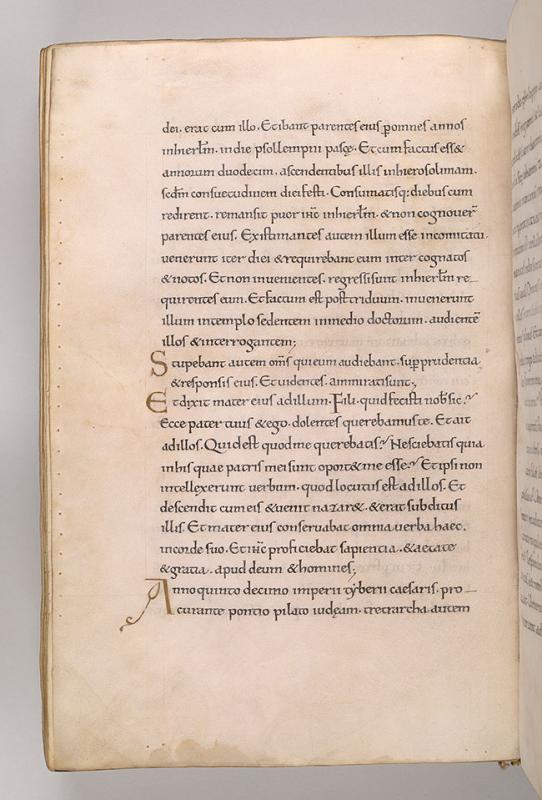 dei. erat cum illo. Et ibant parentes eius p omnes annos
in hierlm. in die sollempni pasche. Et cum factus ess&
annorum duodecim. ascendentibus illis in hierosolimam.
secdm consuetudinem diei festi. Consumatisq: diebus cum
redirent. remansit puer ihc in hierlm. & non cognouer
parentes eius. Existimantes autem illum esse in comitatu.
uenerunt iter diei & requirebant eum inter cognatos
& notos. Et non inuenientes. regressi sunt in hierlm re-
quirentes eum. Et factum est post triduum. inuenerunt
illum in templo sedentem in medio doctorum. audiente
illos & interrogantem;
Stupebant autem oms qui eum audiebant. sup prudentia
& responsis eius. Et uidentes. ammirati sunt;
Et dixit mater eius ad illum. Fili. quid fecisti nob sic?
Ecce pater tuus & ego. dolentes querebamus te. Et ait
ad illos. Quid est quod me querebatis? Nesciebatis quia
in his quae patris mei sunt oport& me esse? Et ipsi non
intellexerunt uerbum. quod locutus est ad illos. Et
descendit cum eis & uenit nazar&. & erat subditus
illis. Et mater eius conseruabat omnia uerba haec.
in corde suo. Et ihc proficiebat sapientia. & aetate
& gratia. apud deum & homines;
Anno quinto decimo imperii tyberii caesaris. pro-
curante pontio pilato iudęam. tretrarcha autem